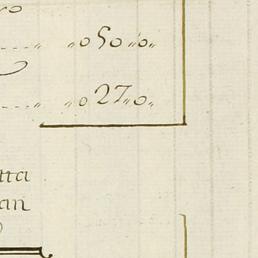 „050„0„
„027„0„
tta
an